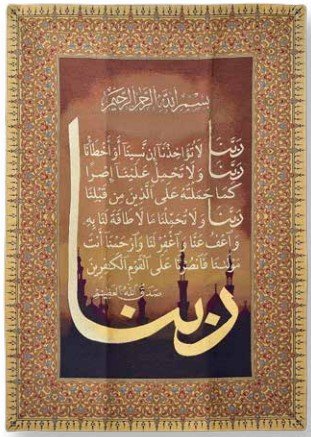 بسم الله الرحمن الرحيم
رَبَّنَا لَا تُؤَاخِذْنَا إِن نَّسِينَا أَوْ أَخْطَأْنَا
رَبَّنَا وَلَا تَحْمِلْ عَلَيْنَا إِصْرًا
كَمَا حَمَلْتَهُ عَلَى الَّذِينَ مِن قَبْلِنَا
رَبَّنَا وَلَا تُحَمِّلْنَا مَا لَا طَاقَةَ لَنَا بِهِ
وَاعْفُ عَنَّا وَاغْفِرْ لَنَا وَارْحَمْنَا أَنتَ
مَوْلَىٰنَا فَانصُرْنَا عَلَى الْقَوْمِ الْكَٰفِرِينَ
صدق الله العظيم
ربنا